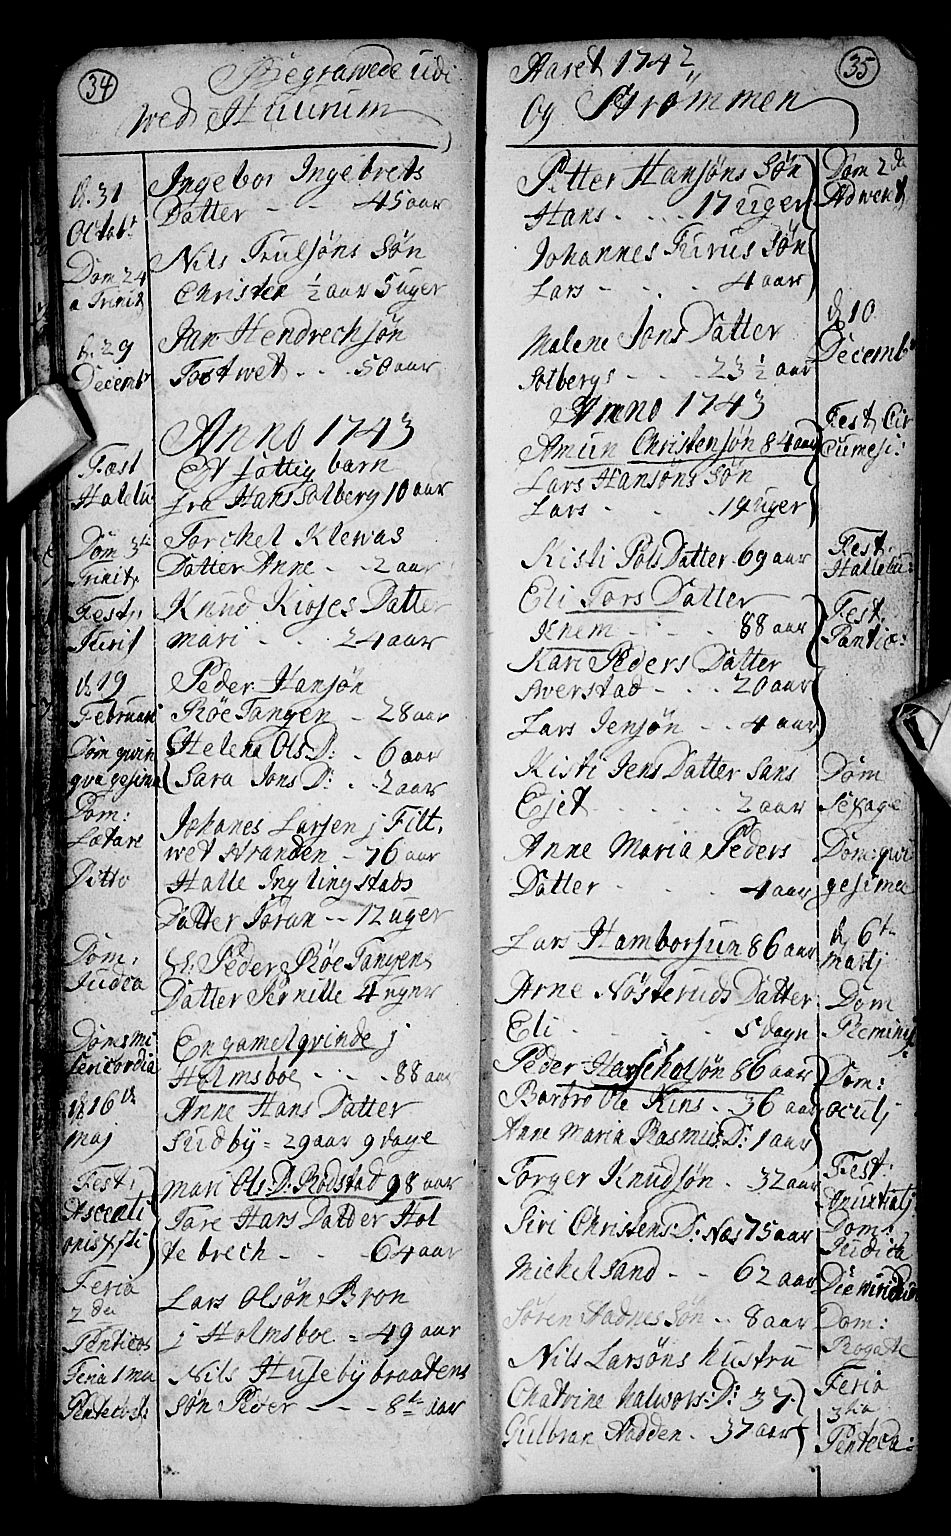 34
Begrawede udi
wed Huurum
d. 31
Octobr
Ingebor Ingebrets
Datter - - 45 aar
Dom 24
a Trinit
Nils Trulsøns Søn
Christen ½ aar 5 uger
d. 29
Decembr
Jan Hendrechsøn
Tostwet - - 50 aar
Anno 1743
Fæst
Et fattig barn
fra Hans Solberg 10 aar
Dom 3
Trinit
Torchel Klewas
Datter Anne - - 2 aar
Fest
Purif
Knud Kioses Datter
Mari - - 24 aar
d. 19
Februari
Peder Hansøn
Røe Tangen - 28 aar
Dom qvin
qvagesima
Helena Ols D: - 6 aar
Sara Jons D: - 2 aar
Dom:
Lætare
Johanes Larsen j Fitt,
wet Stranden - 76 aar
Ditto
Halle Inglingstads
Datter Joran - - 12 uger
Dom,
Judica
Peder Røe Tangens
Datter Pernille 4 uger
Doms mi
sericordia
En gamel qvinde j
Holmsboe - - 88 aar
d. 16
Maj
Anne Hans Datter
Sudby = 29 aar 9 dage
Fest,
Ascenti
onis Xsti
Mari Ols D: Rødstad 98 aar
Tore Hans Datter Hol
tebrech - - 64 aar
Feria
2da
Pentecos
Lars Olsøn Bron
j Holmsboe = 49 aar
Feria 1ma
Pentecost:
Nils Husebybraatens
Søn Peder - - - 8te aar
35
Aaret 1742
og Strømmen
Petter Hansøns Søn
Hans - - - 17 uger
Dom 2da
Adwent
Johannes Furus Søn
Lars - - - 4 aar
Malene Jons Datter
Solbergs - - - 23 ½ aar
d. 10
Decembr
Anno 1743
Amun Christensøn 84 aar
Fest Cir
cumcisi:
Lars Hansøns Søn
Lars - - - 19 uger
Kisti Pols Datter 69 aar
Fest
Eli Tors Datter
Knem - - - 88 aar
Fest,
Kari Peders Datter
Averstad - - - 20 aar
Lars Jensøn - - 4 aar
Kisti Jens Datter Sans
Ejet - - - 2 aar
Dom
Sexage
Anne Maria Peders
Datter - - - 4 aar
Dom: qvi
gesimæ
Lars Hamborsun 86 aar
d. 6te
Martj
Arne Nøsteruds Datter
Eli - - - 5 dage
Dom
Reminis
Peder Harscholsøn 86 aar
Barbro Ole Kins - 36 aar
Anne Maria Rasmus D: 1 aar
Dom:
Oculj
Torger Knudsøn - 32 aar
Fest:
Siri Christens D: Næs 75 aar
Dom:
Judica
Michel Sand - - 62 aar
Søren Stadnes Søn - - 8 aar
Dom:
Rogate
Nils Larsøns hustru
Chatrine Halwors: D: 37
Gulbran Stadden - 37 aar
Feria
3tia
Penteco: